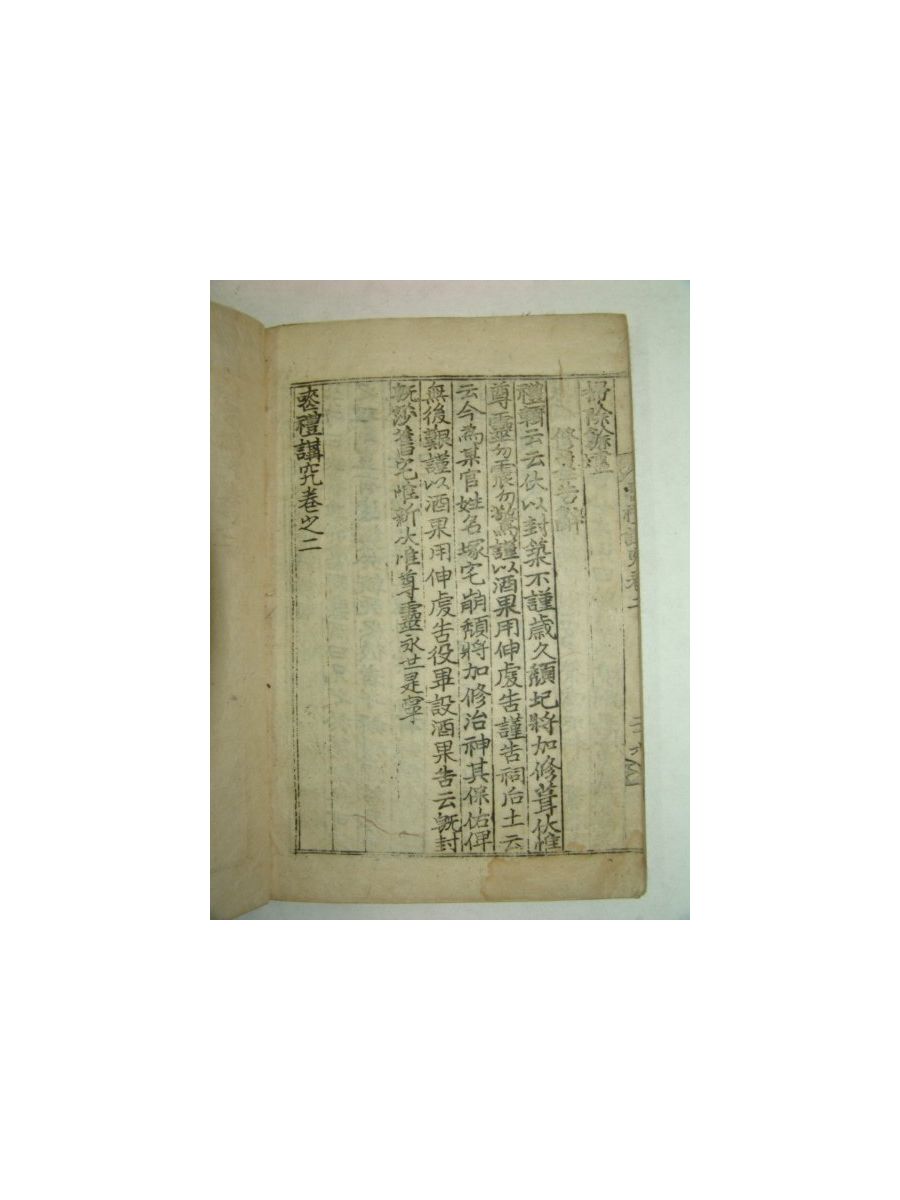 掃除餘塵
修墓告辭
禮輯云云伏以封築不謹歲久頹圮將加修葺伏惟
尊靈勿震勿驚謹以酒果用伸虔告謹告祠后土云
云今為某官姓名塚宅崩頹將加修治神其保佑俾
無後艱謹以酒果用伸虔告役畢設酒果告云旣封
旣莎舊宅惟新伏惟尊靈永世是寧
喪禮講究卷之二